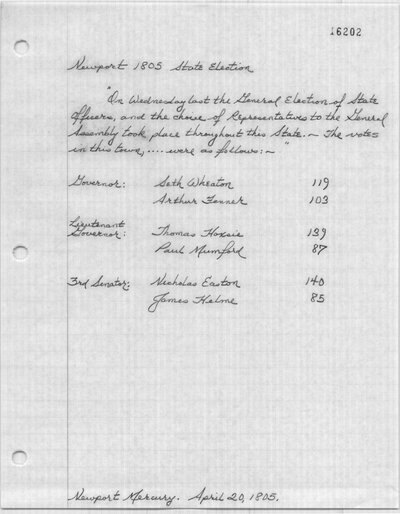 16202
Newport 1805 State Election
"On Wednesday last the General Election of State
Officers, and the choice of Representatives to the General
Assembly took place throughout this State. ~ The votes
in this town, .... were as follows: ~ "
Governor: Seth Wheaton 119
Arthur Fenner 103
Lieutenant
Governor: Thomas Hoxsie 139
Paul Mumford 87
3rd Senator: Nicholas Easton 140
James Helme 85
Newport Mercury. April 20, 1805.